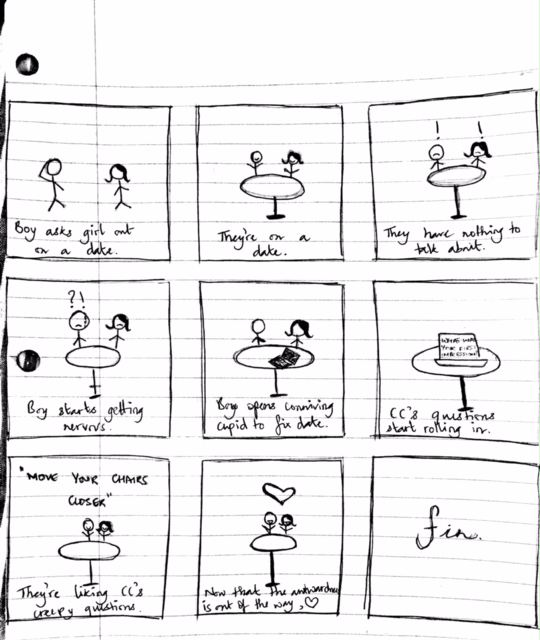 Boy asks girl out
on a date.
They're on a
date.
! !
They have nothing to
talk about.
?!
Boy starts getting
nervous.
Boy opens conniving
cupid to fix date.
WHAT WAS
YOUR FIRST
IMPRESSION
CC's questions
start rolling in.
"MOVE YOUR CHAIRS
CLOSER"
They're liking CC's
creepy questions.
Now that the awkwardness
is out of the way, ♡
fin.